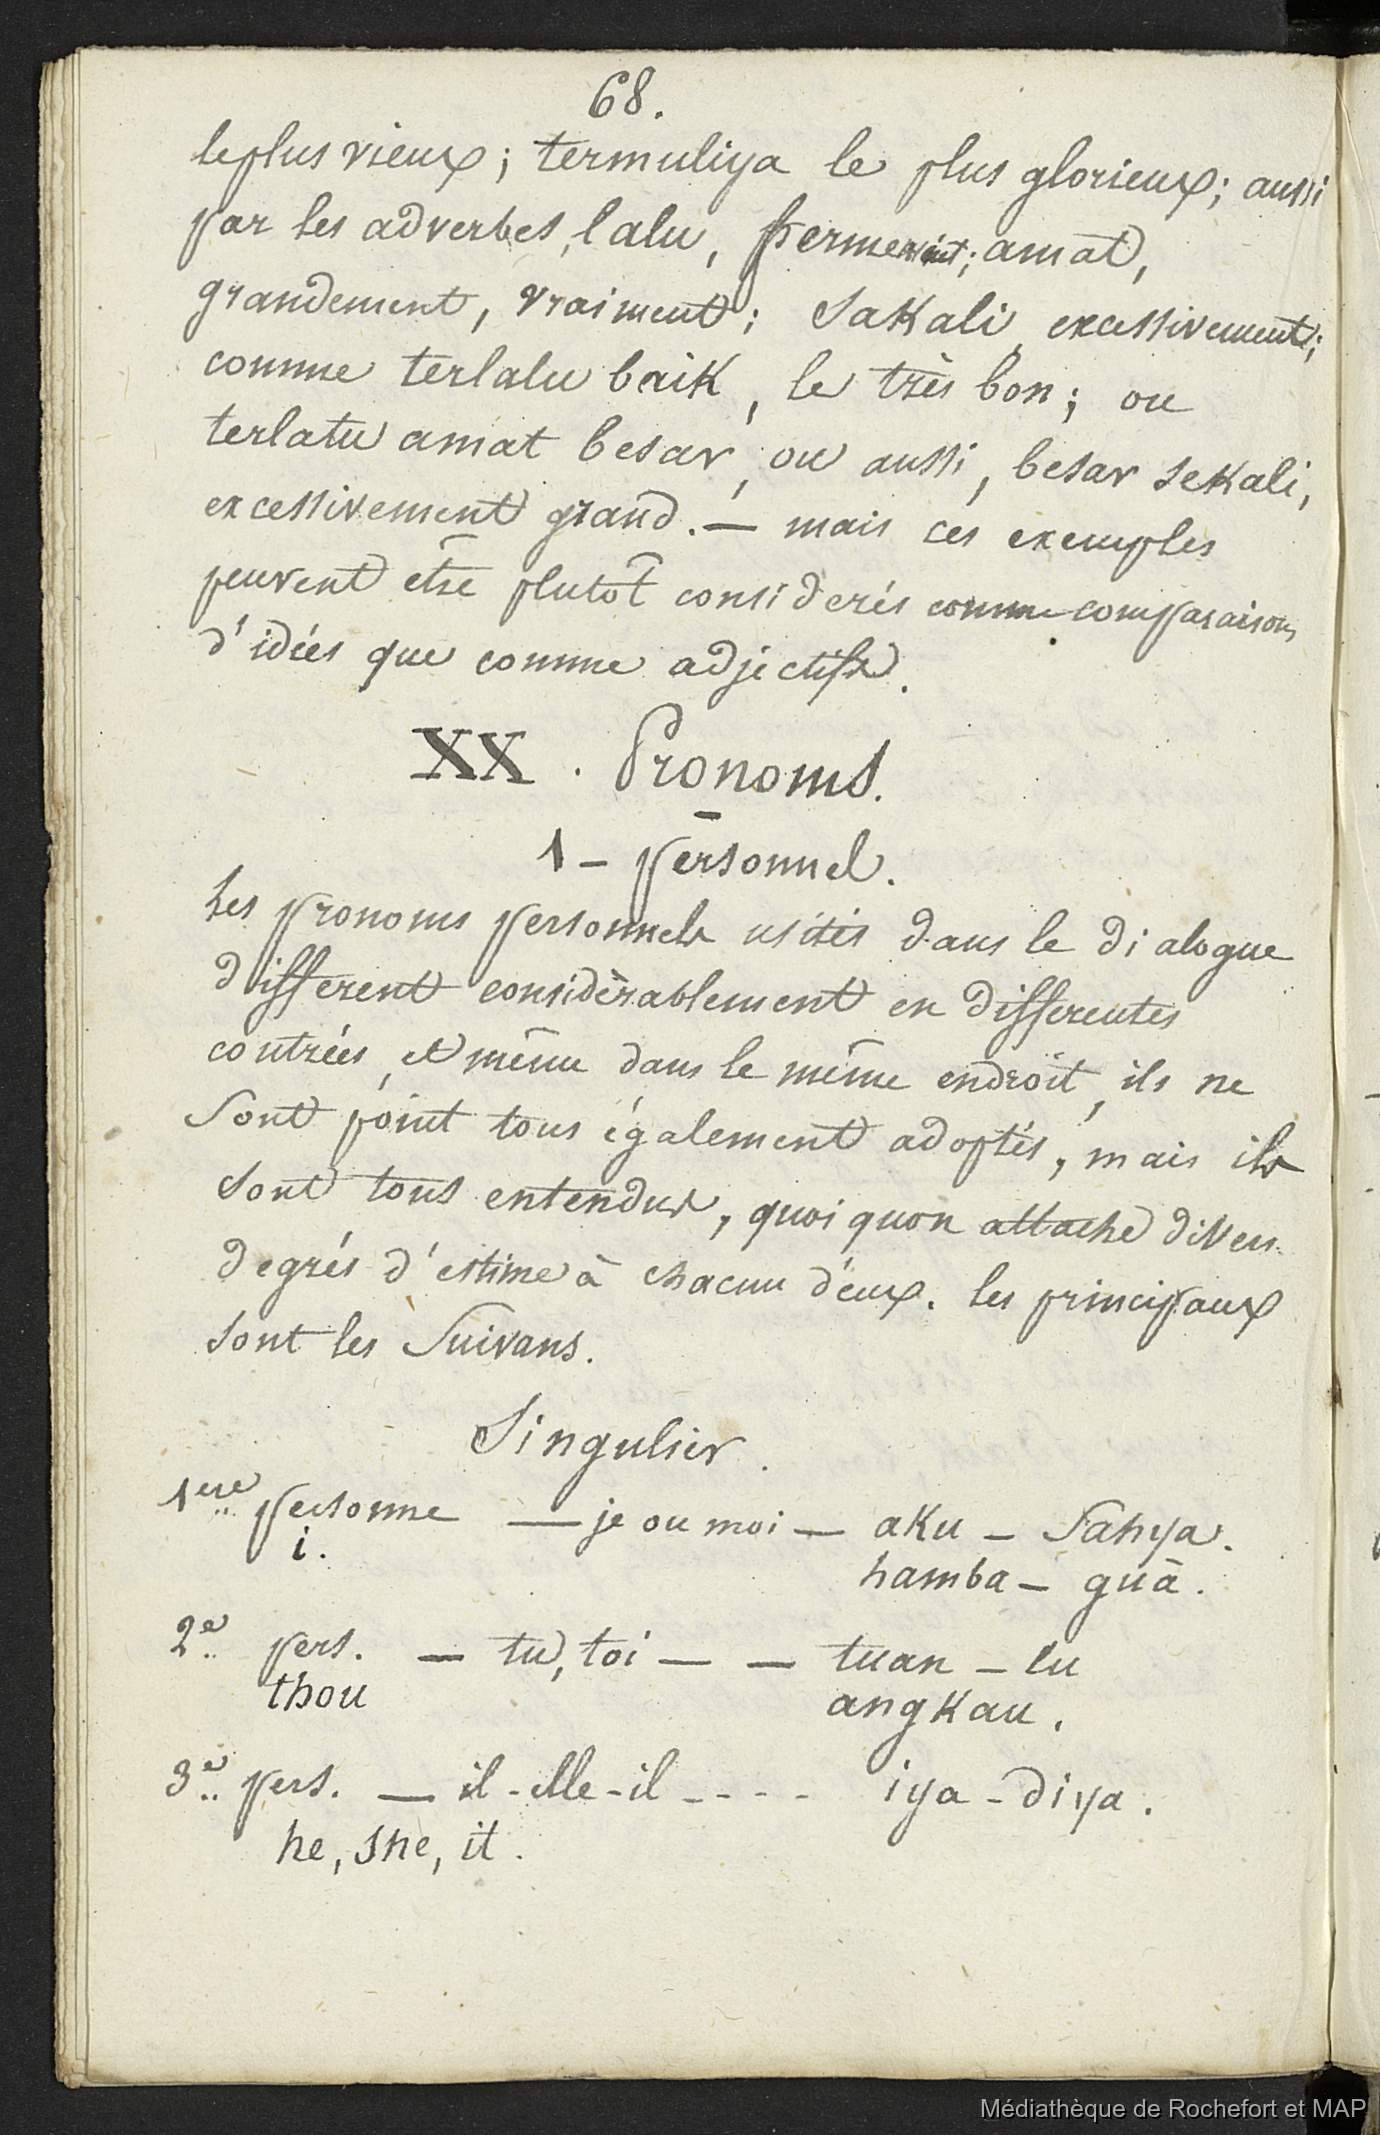 68.
le plus vieux; termuliya le plus glorieux; aussi
par les adverbes, lalu, fermement; amat,
grandement, vraiment; sakali, excessivement;
comme terlalu baik, le très bon; ou
terlatu amat besar, ou aussi, besar sekali,
excessivement grand. — mais ces exemples
peuvent etre plutôt considerés comme comparaisons
d'idées que comme adjectifs.
XX. Pronoms.
1 — personnel.
les pronoms personnels usités dans le dialogue
different considèrablement en differentes
contrées, et même dans le même endroit, ils ne
sont point tous également adoptés, mais ils
sont tous entendus, quoi quon attache divers
degrés d'estime à chacun d'eux. les principaux
sont les suivans.
Singulier.
1ere personne — je ou moi — aku — Sahya.
i. hamba — guā.
2e pers. — tu, toi — — tuan — lu
thou angkau.
3e pers. — il - elle - il - - - - iya - diya.
he, she, it.
Médiathèque de Rochefort et MAP